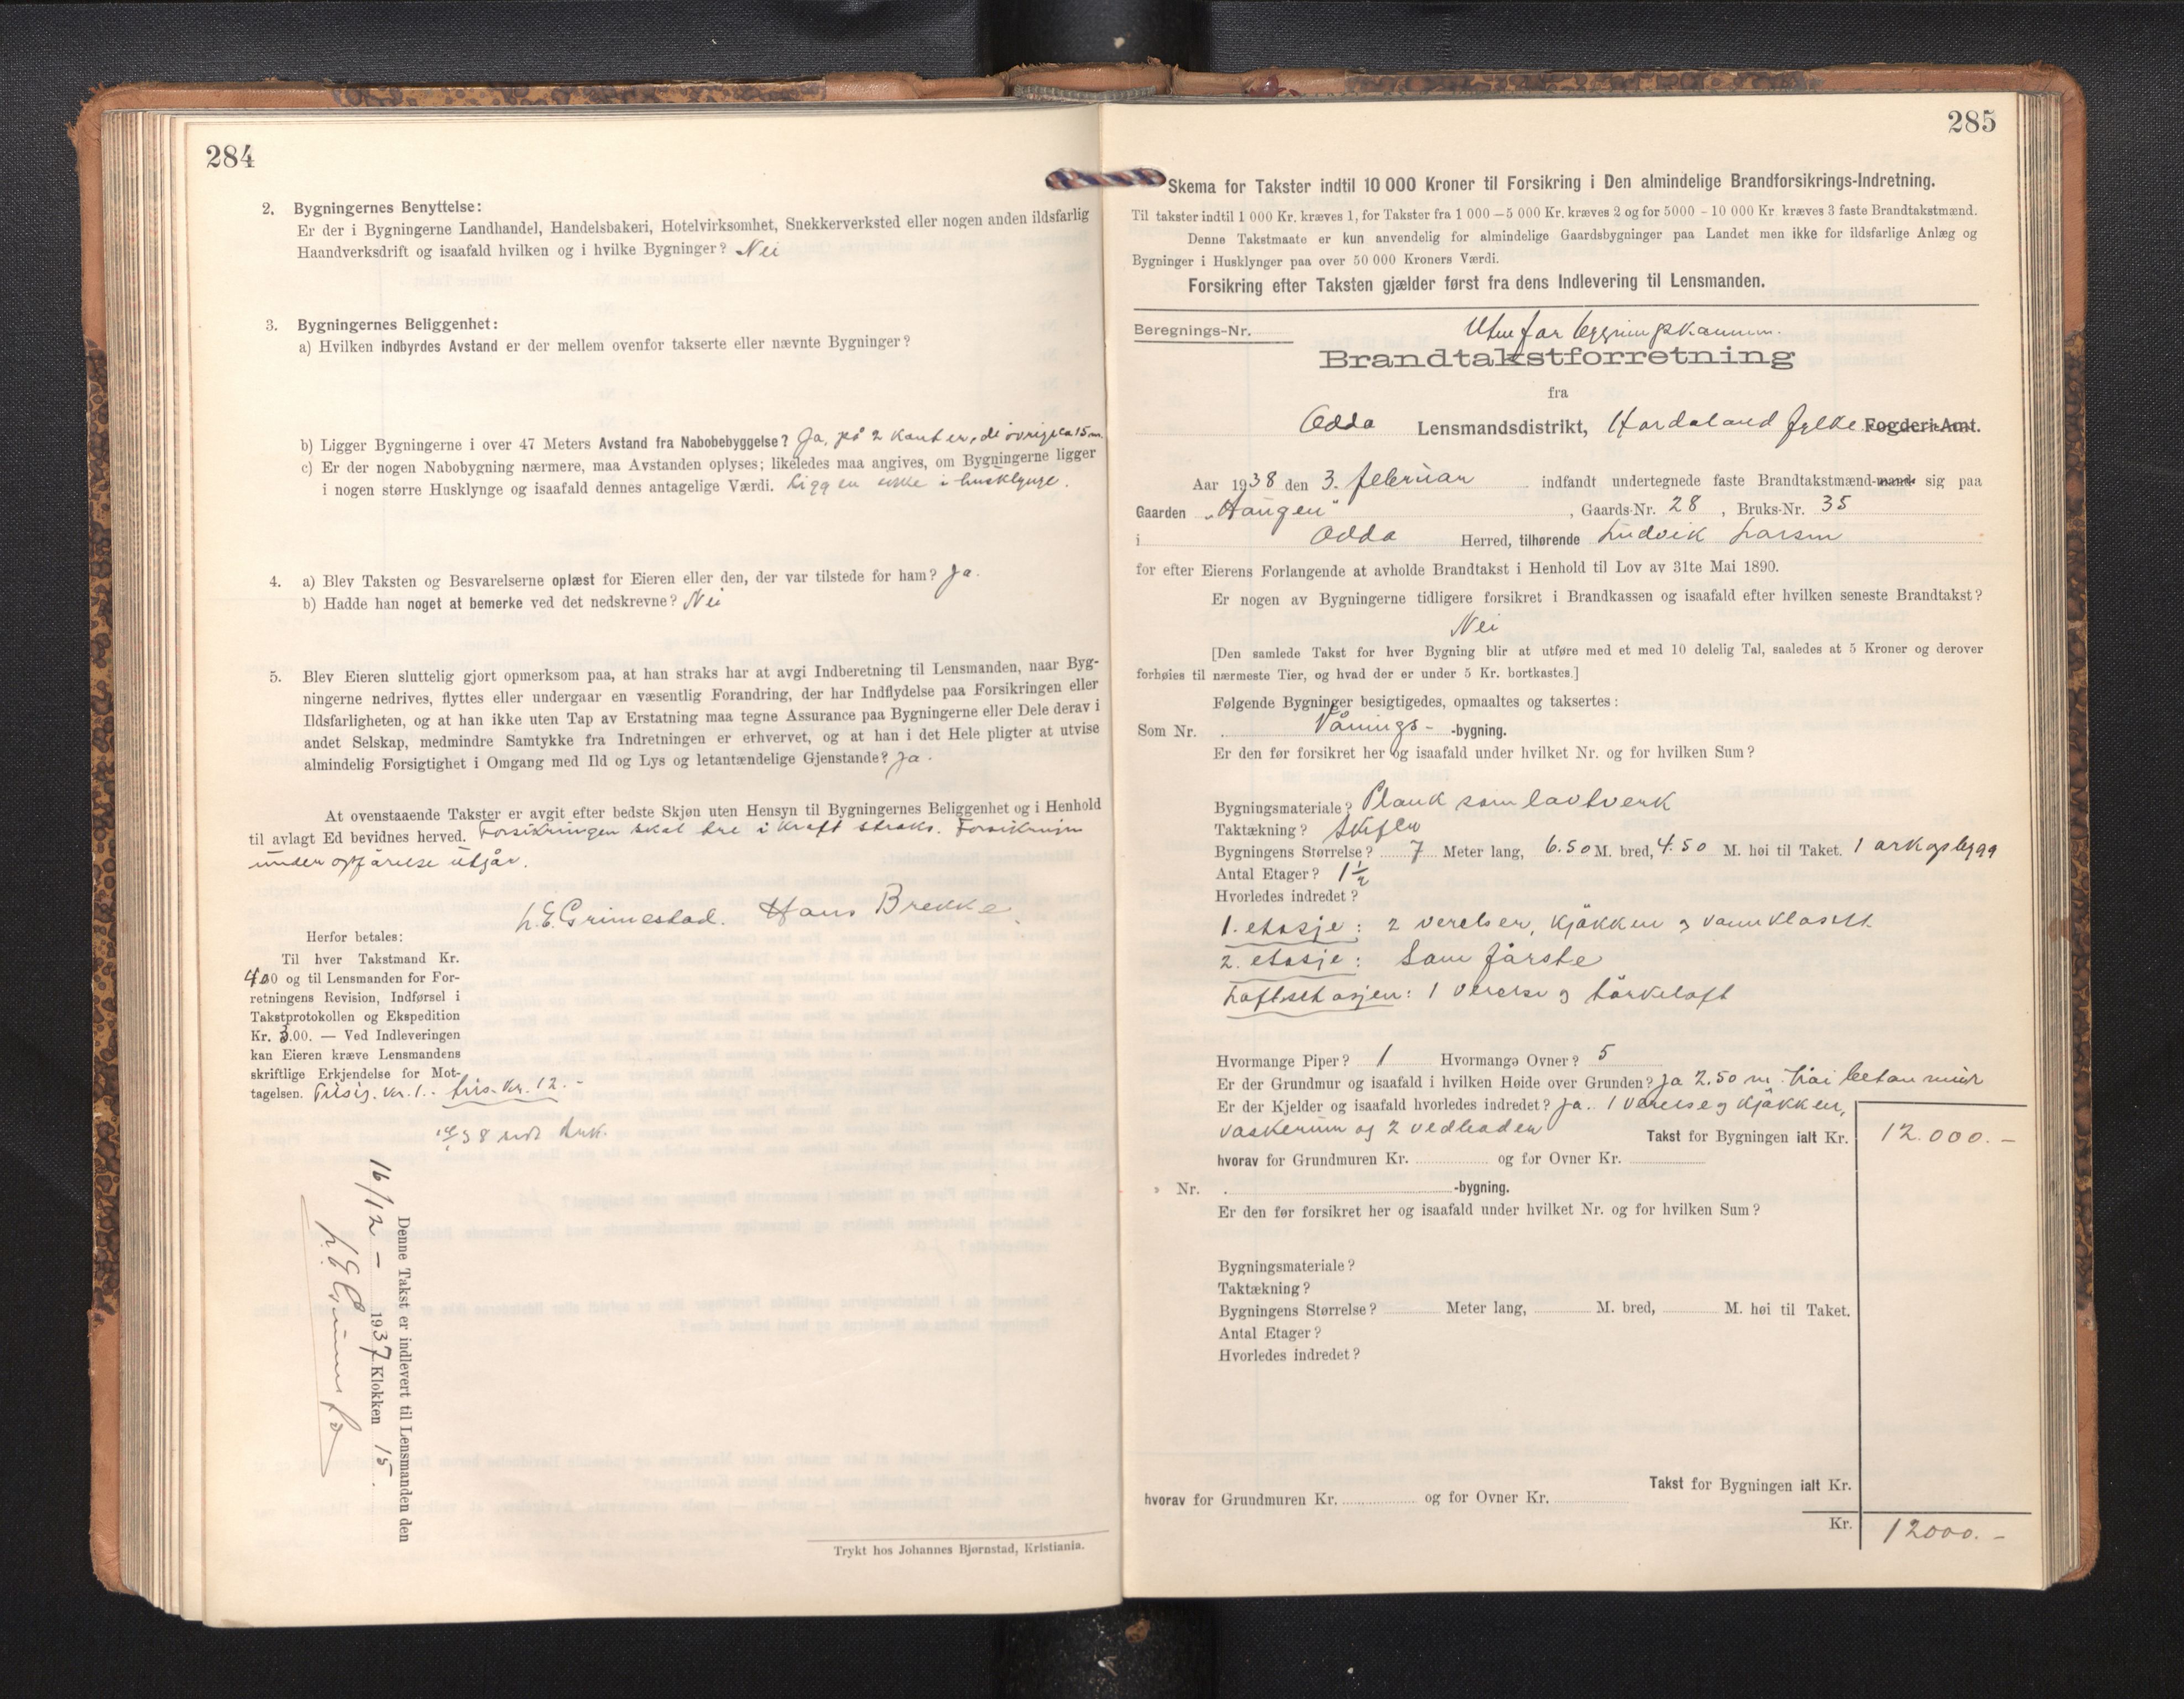 284
2. Bygningernes Benyttelse:
Er der i Bygningerne Landhandel, Handelsbakeri, Hotelvirksomhet, Snekkerverksted eller nogen anden ildsfarlig
Haandverksdrift og isaafald hvilken og i hvilke Bygninger? Nei
3. Bygningernes Beliggenhet:
a) Hvilken indbyrdes Avstand er der mellem ovenfor takserte eller nævnte Bygninger?
b) Ligger Bygningerne i over 47 Meters Avstand fra Nabobebyggelse? Ja, på 2 kanter, de övrige ca 15 m.
c) Er der nogen Nabobygning nærmere, maa Avstanden oplyses; likeledes maa angives, om Bygningerne ligger
i nogen større Husklynge og isaafald dennes antagelige Værdi. Ligg en ikke i husklynge.
4. a) Blev Taksten og Besvarelserne oplæst for Eieren eller den, der var tilstede for ham? Ja.
b) Hadde han noget at bemerke ved det nedskrevne? Nei
5. Blev Eieren sluttelig gjort opmerksom paa, at han straks har at avgi Indberetning til Lensmanden, naar Byg-
ningerne nedrives, flyttes eller undergaar en væsentlig Forandring, der har Indflydelse paa Forsikringen eller
Ildsfarligheten, og at han ikke uten Tap av Erstatning maa tegne Assurance paa Bygningerne eller Dele derav i
andet Selskap, medmindre Samtykke fra Indretningen er erhvervet, og at han i det Hele pligter at utvise
almindelig Forsigtighet i Omgang med Ild og Lys og letantændelige Gjenstande? Ja.
At ovenstaaende Takster er avgit efter bedste Skjøn uten Hensyn til Bygningernes Beliggenhet og i Henhold
til avlagt Ed bevidnes herved. Forsikringen skal tre i kraft straks. Forsikringen
under opförelse utgår.
L.E. Grimestad. Hans Brekke
Herfor betales:
Til hver Takstmand Kr.
4.00 og til Lensmanden for For-
retningens Revision, Indførsel i
Takstprotokollen og Ekspedition
Kr. 3.00. — Ved Indleveringen
kan Eieren kræve Lensmandens
skriftlige Erkjendelse for Mot-
tagelsen. Tilsig. kr. 1.- kr. 12.-
Denne Takst er indlevert til Lensmanden den
16/12 - 1937 Klokken 15.
Trykt hos Johannes Bjørnstad, Kristiania.
285
Skema for Takster indtil 10 000 Kroner til Forsikring i Den almindelige Brandforsikrings-Indretning.
Til takster indtil 1 000 Kr. kræves 1, for Takster fra 1 000 — 5 000 Kr. kræves 2 og for 5000 - 10 000 Kr. kræves 3 faste Brandtakstmænd.
Denne Takstmaate er kun anvendelig for almindelige Gaardsbygninger paa Landet men ikke for ildsfarlige Anlæg og
Bygninger i Husklynger paa over 50 000 Kroners Værdi.
Forsikring efter Taksten gjælder først fra dens Indlevering til Lensmanden.
Beregnings-Nr.
Utenfor bygningskommun.
Brandtakstforretning
fra
Odda Lensmandsdistrikt, Hordaland fylke Fogderi Amt.
Aar 1938 den 3. februar indfandt undertegnede faste Brandtakstmænd-mand sig paa
Gaarden "Haugen", Gaards-Nr. 28, Bruks-Nr. 35
i Odda Herred, tilhørende Ludvik Larsen
for efter Eierens Forlangende at avholde Brandtakst i Henhold til Lov av 31te Mai 1890.
Er nogen av Bygningerne tidligere forsikret i Brandkassen og isaafald efter hvilken seneste Brandtakst?
Nei
[Den samlede Takst for hver Bygning blir at utføre med et med 10 delelig Tal, saaledes at 5 Kroner og derover
forhøies til nærmeste Tier, og hvad der er under 5 Kr. bortkastes.]
Følgende Bygninger besigtigedes, opmaaltes og taksertes:
Som Nr. . Vånings- -bygning.
Er den før forsikret her og isaafald under hvilket Nr. og for hvilken Sum?
Bygningsmateriale? Plank som laftverk
Taktækning? Skifer
Bygningens Størrelse? 7 Meter lang, 6.50 M. bred, 4.50 M. høi til Taket. 1 arkopbygg
Antal Etager? 1 1/2
Hvorledes indredet?
1. etasje: 2 verelser, kjökken og vannklosett
2. etasje: Som förste
Loftsetasjen: 1 verelse og törkeloft
Hvormange Piper? 1 Hvormange Ovner? 5
Er der Grundmur og isaafald i hvilken Høide over Grunden? Ja 2.50 m. höi betonmur
Er der Kjelder og isaafald hvorledes indredet? Ja. 1 verelse og kjökken,
vaskerum og 2 vedboder Takst for Bygningen ialt Kr. 12.000.-
hvorav for Grundmuren Kr. og for Ovner Kr.
» Nr. . -bygning.
Er den før forsikret her og isaafald under hvilket Nr. og for hvilken Sum?
Bygningsmateriale?
Taktækning?
Bygningens Størrelse? Meter lang, M. bred, M. høi til Taket.
Antal Etager?
Hvorledes indredet?
Takst for Bygningen ialt Kr.
hvorav for Grundmuren Kr. og for Ovner Kr.
Kr. 12000.-